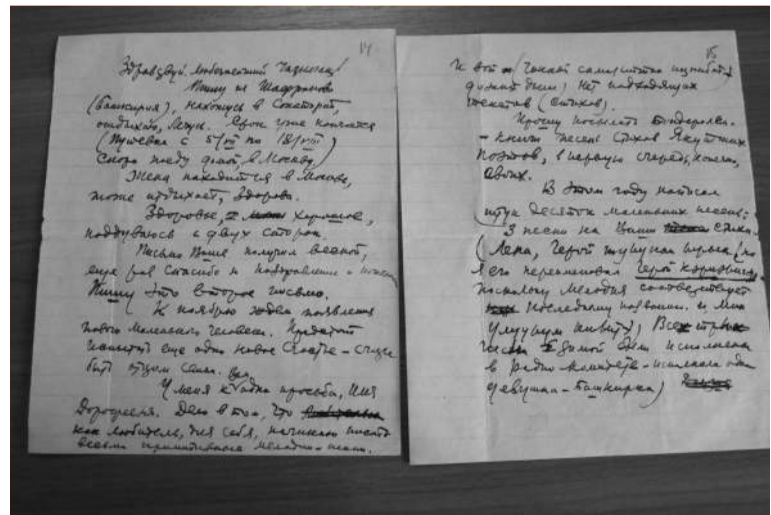 14
Здравствуй, любезнейший
Пишу из Шафраново
(Башкирия), нахожусь в Санатории,
отдыхаю, лечусь. Срок уже кончается
(Путевка с 5/VII по 18/VIII)
Скоро поеду домой, в Москву.
Жена находится в Москве,
тоже отдыхает, здорова.
Здоровье, хорошее,
с двух сторон.
Письмо Ваше получил весной,
еще раз спасибо и поздравление
Пишу это второе письмо.
К ноябрю ждем появления
нового маленького человека. Предстоит
испытать еще одно новое счастье –
быть отцом семьи.
У меня к Вам одна просьба,
Дорофеевна. Дело в том, что
как любитель, для себя, начинаю писать
весьма примитивные мелодии – песни.
15
И вот
дни, нет подходящих
текстов (стихов).
Прошу послать бандеролью
– книги песен, стихов Якутских
поэтов, в первую очередь, конечно,
своих.
В этом году написал
штук десяток маленьких песен:
3 песни на Ваши стихи
(Лена, Герой
я его переименовал Герой
поскольку мелодия соответствует
последнему названию. и
Все три
песни зимой были исполнены
в радио-комитете – исполнила одна
девушка – башкирка)